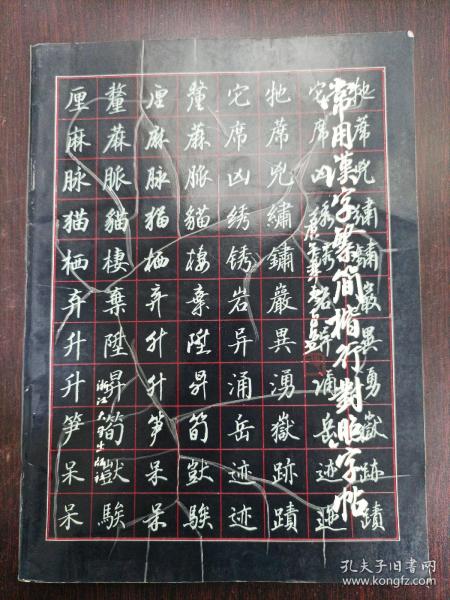 常用漢字繁简楷行對照字帖
浙江大学出版社
厘 釐 厘 釐 它 牠 它 牠
麻 蔴 麻 蔴 席 蓆 席 蓆
脉 脈 脉 脈 凶 兇 凶 兇
猫 貓 猫 貓 绣 繡 绣 繡
栖 棲 栖 棲 锈 鏽 锈 鏽
弃 棄 弃 棄 岩 巖 岩 巖
升 陞 升 陞 异 異 异 異
升 昇 升 昇 涌 湧 涌 湧
笋 筍 笋 筍 岳 嶽 岳 嶽
呆 獃 呆 獃 迹 跡 迹 跡
呆 騃 呆 騃 迹 蹟 迹 蹟
孔夫子旧书网
www.kongfz.com